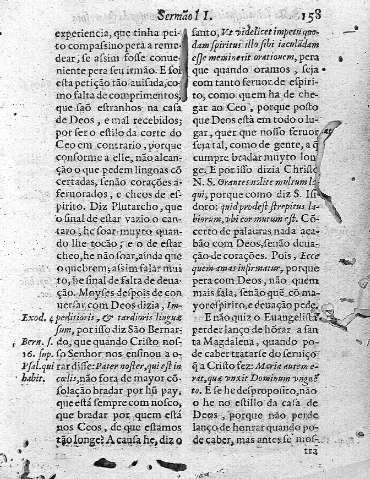 Sermão II. 158
experiencia, que tinha pei-
to compassiuo pera a reme-
dear, se assim fosse conue-
niente pera seu irmão. E foi
esta petição tão auisada, co-
mo falta de comprimentos,
que saõ estranhos na casa
de Deos, e mal recebidos;
por ser o estilo da corte do
Ceo em contrario, porque
conforme a elle, não alcan-
ção o que pedem lingoas cõ
certadas, senão corações a-
feruorados, e cheos de espi-
rito. Diz Plutarcho, que
o sinal de estar vazio o can-
taro; he soar muyto quan-
do lhe tocão; e o de estar
cheo, he não soar, ainda que
o quebrem; assim falar mui
to, he sinal de falta de deua-
ção. Moyses despois de con
uersar, com Deos dizia, Im-
Exod. 4 peditioris, & tardioris linguæ
sum, por isso diz São Bernar-
Bern. s. do, que quando Christo nos-
16. sup. so Senhor nos ensinou a o-
Psal. qui rar disse: Pater noster, qui est in
habit. cælis, não sota de mayor cõ
solação bradar por hũ pay,
que está sempre com nosco,
que bradar por quem está
nos Ceos, de que estamos
tão longe? A causa he, diz o
santo, Vt videlicet impetu quo-
dam spiritus illo sibi iaculadam
esse meminerit orationem, pera
que quando oramos, seja
com tanto feruor de espiri-
to, como quem ha de che-
gar ao Ceo, porque posto
que Deos está em todo o lu-
gar, quer que nosso feruor
seja tal, como de gente, a q̃
cumpre bradar muyto lon-
ge. E por isso dizia Christo
N. S. Orantes nolite multum lo
qui, porque como diz S. Isi
doro: quid prodest strepitus la-
biorum, vbi cor mutum est. Cõ-
certo de palauras nada aca-
bão com Deos, senão deua-
ção de corações. Pois, Ecce
quem amas infirmatur, porque
pera com Deos, não quem
mais fala, senão quẽ cõ ma-
yor espirito, e deuação pede.
E não quiz o Euangelista
perder lanço de hõrar a san
ta Magdalena, quando po-
de caber tratarse do seruiço
q̃ a Christo fez: Maria autem e-
rat, quæ vnxit Dominum vngué
to. E se he desproposito, não
o he no estillo da casa de
Deos, porque não perde
lanço de honrar quando po-
de caber, mas antes se mos-
tra